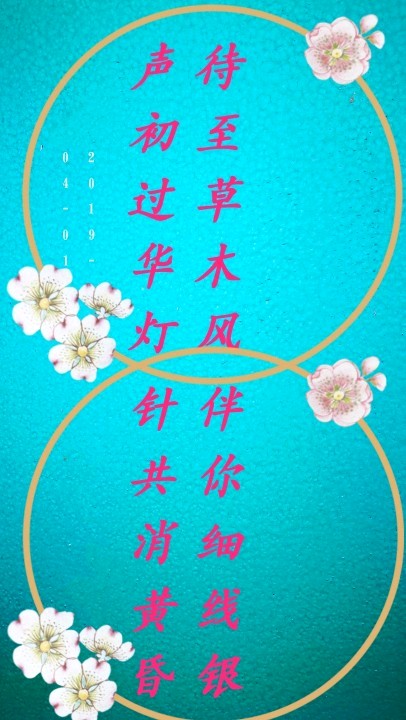 待至草木风伴你细线银
声初过华灯针共消黄昏
2019-
04-01